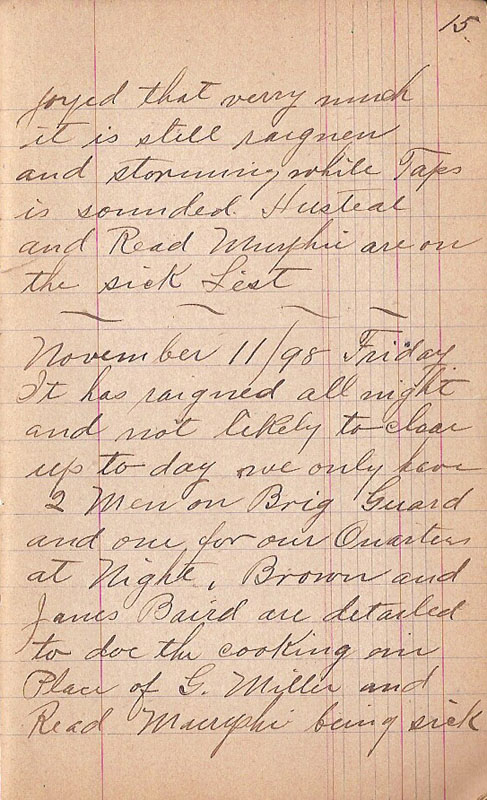 15.
joyed that verry much
it is still raignen
and storming while Taps
is sounded. Husteal
and Read Murphie are on
the sick List
November 11/98 Friday
It has raigned all night
and not likely to clear
up to day we only have
2 Men on Brig Guard
and one for our Quarters
at Night, Brown and
James Baird are detailed
to doe the cooking on
Place of G. Miller and
Read Murphie being sick